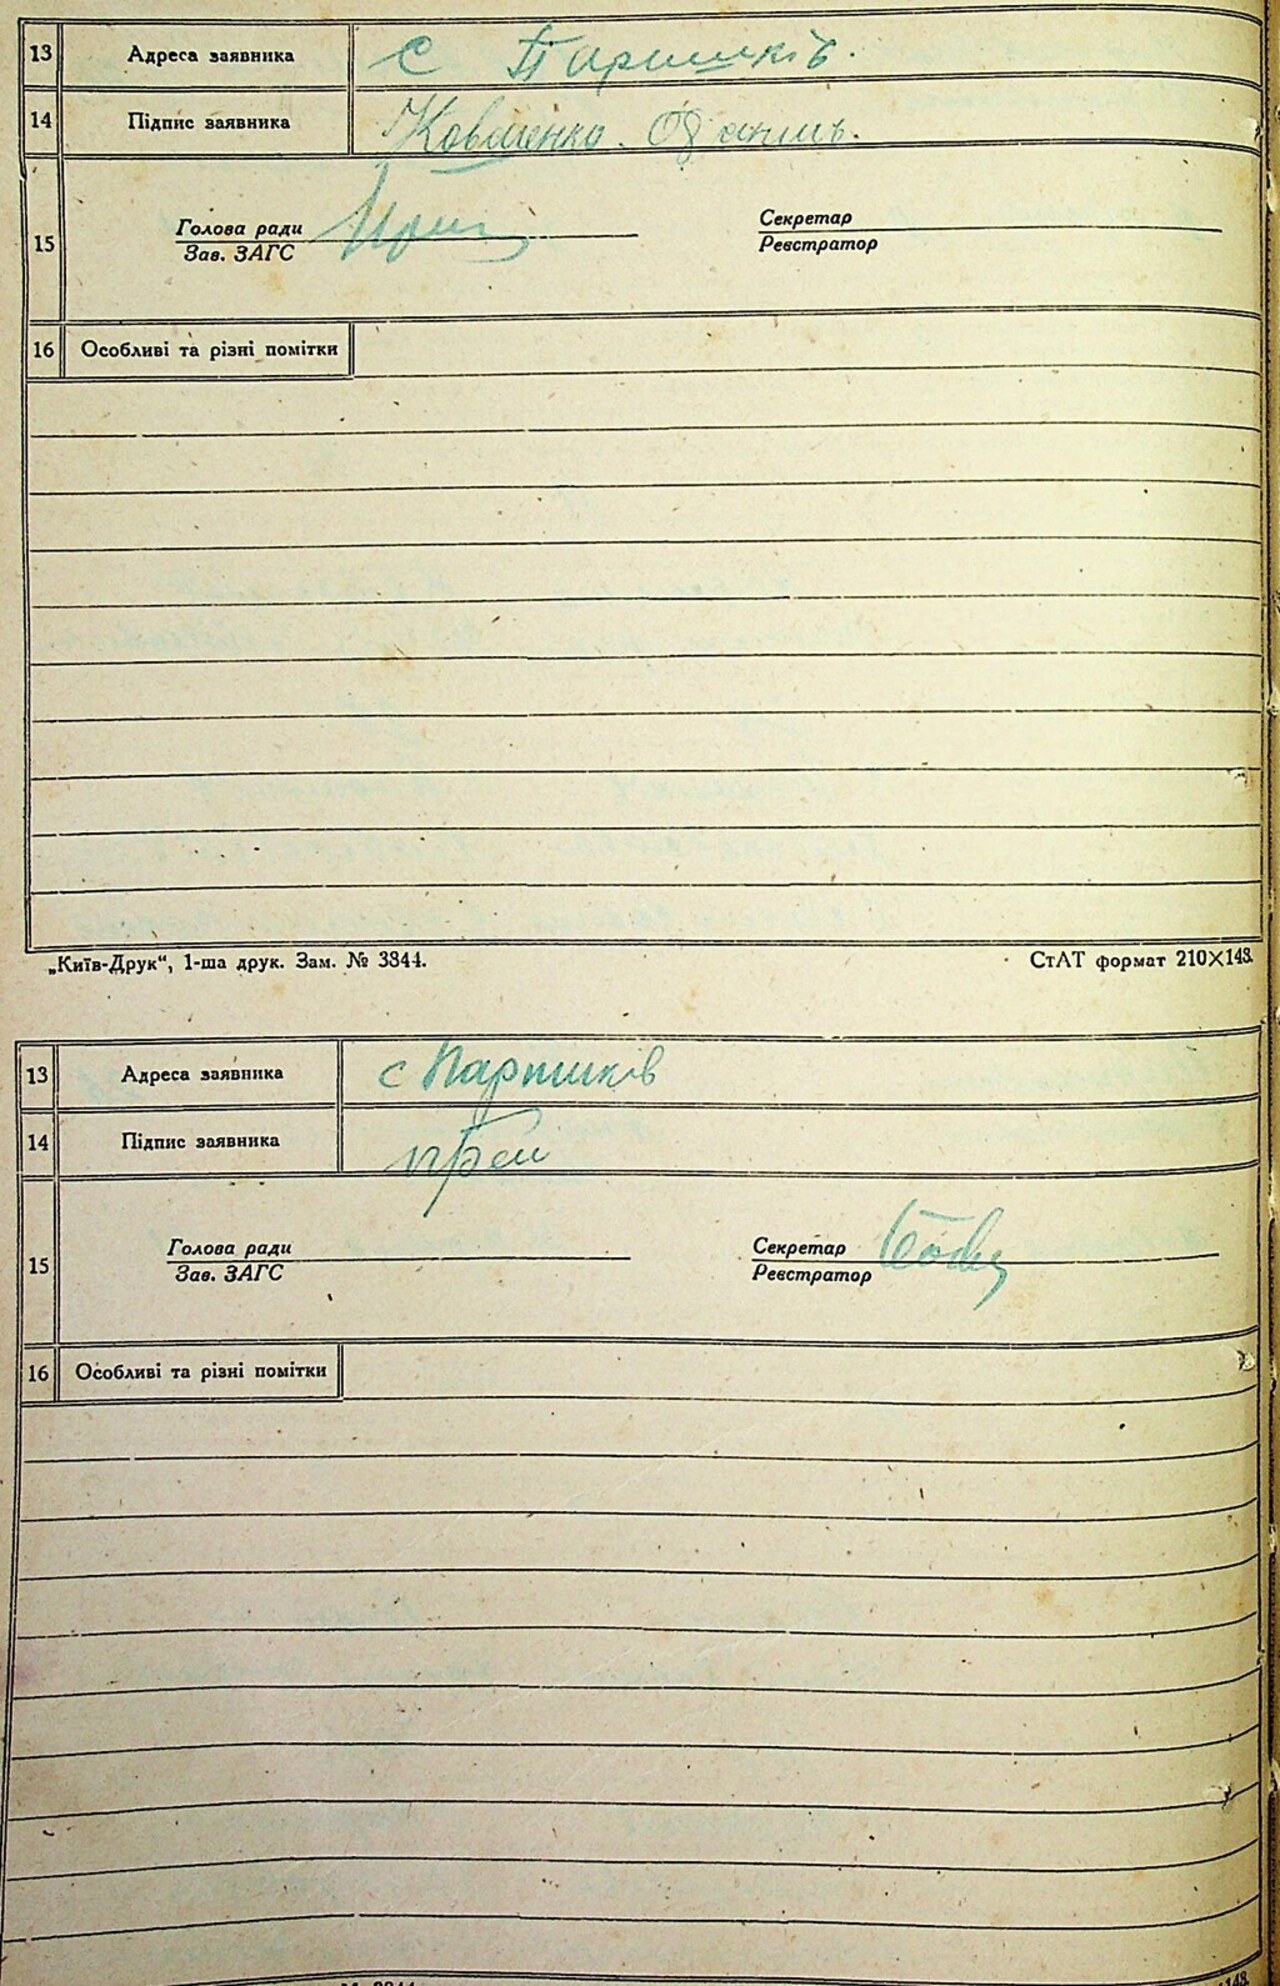 13 Адреса заявника с Паришків.
14 Підпис заявника Коваленко.
15 Голова ради Секретар
Зав. ЗАГС Реєстратор
16 Особливі та різні помітки
„Київ-Друк“, 1-ша друк. Зам. № 3344. СтАТ формат 210×148.
13 Адреса заявника с Паришків
14 Підпис заявника
15 Голова ради Секретар
Зав. ЗАГС Реєстратор
16 Особливі та різні помітки